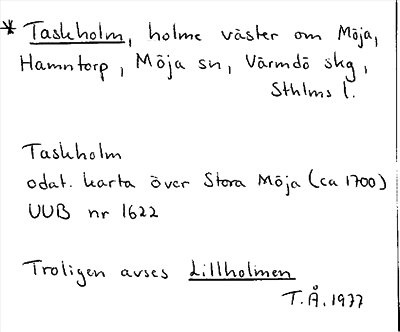 * Taskholm, holme väster om Möja,
Hamntorp, Möja sn, Värmdö skg,
Sthlms l.
Taskholm
odat. karta över Stora Möja (ca 1700)
UUB nr 1622
Troligen avses Lillholmen
T.Å. 1977